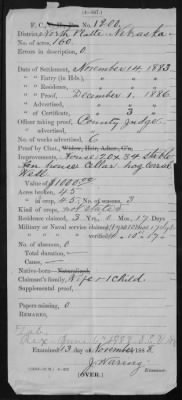 (4-327.)
F. C., No. 1900,
District, North Platte Nebraska
No. of acres, 160.
Errors in description, 0
Date of Settlement, November 14, 1883
" Entry (in Hds.),
" Residence,
" Proof, December 1, 1886
" Advertised,
" of Certificate, 3
Officer taking proof, County Judge
No. of weeks advertised, 6
Proof by Clmt., Widow, Heir, Admr., G'n.
Improvements, House 20x34 stable
hen house cellar hog corral
Well
Value of $1000.00
Acres broke, 45
" crop, 45. No. of seasons, 3
Kind of crops, not stated
Residence claimed, 3 Yrs. 0 Mo. 17 Days
Military or Naval service claimed,
" verified,
No. of absences, 0
Total duration,
Cause,
Native-born Naturalized,
Claimant's family, Wife & 1 child
Supplemental proof,
Papers missing, 0
REMARKS,
Examined 13 day of November 188 8.
J. Waring
(OVER.)